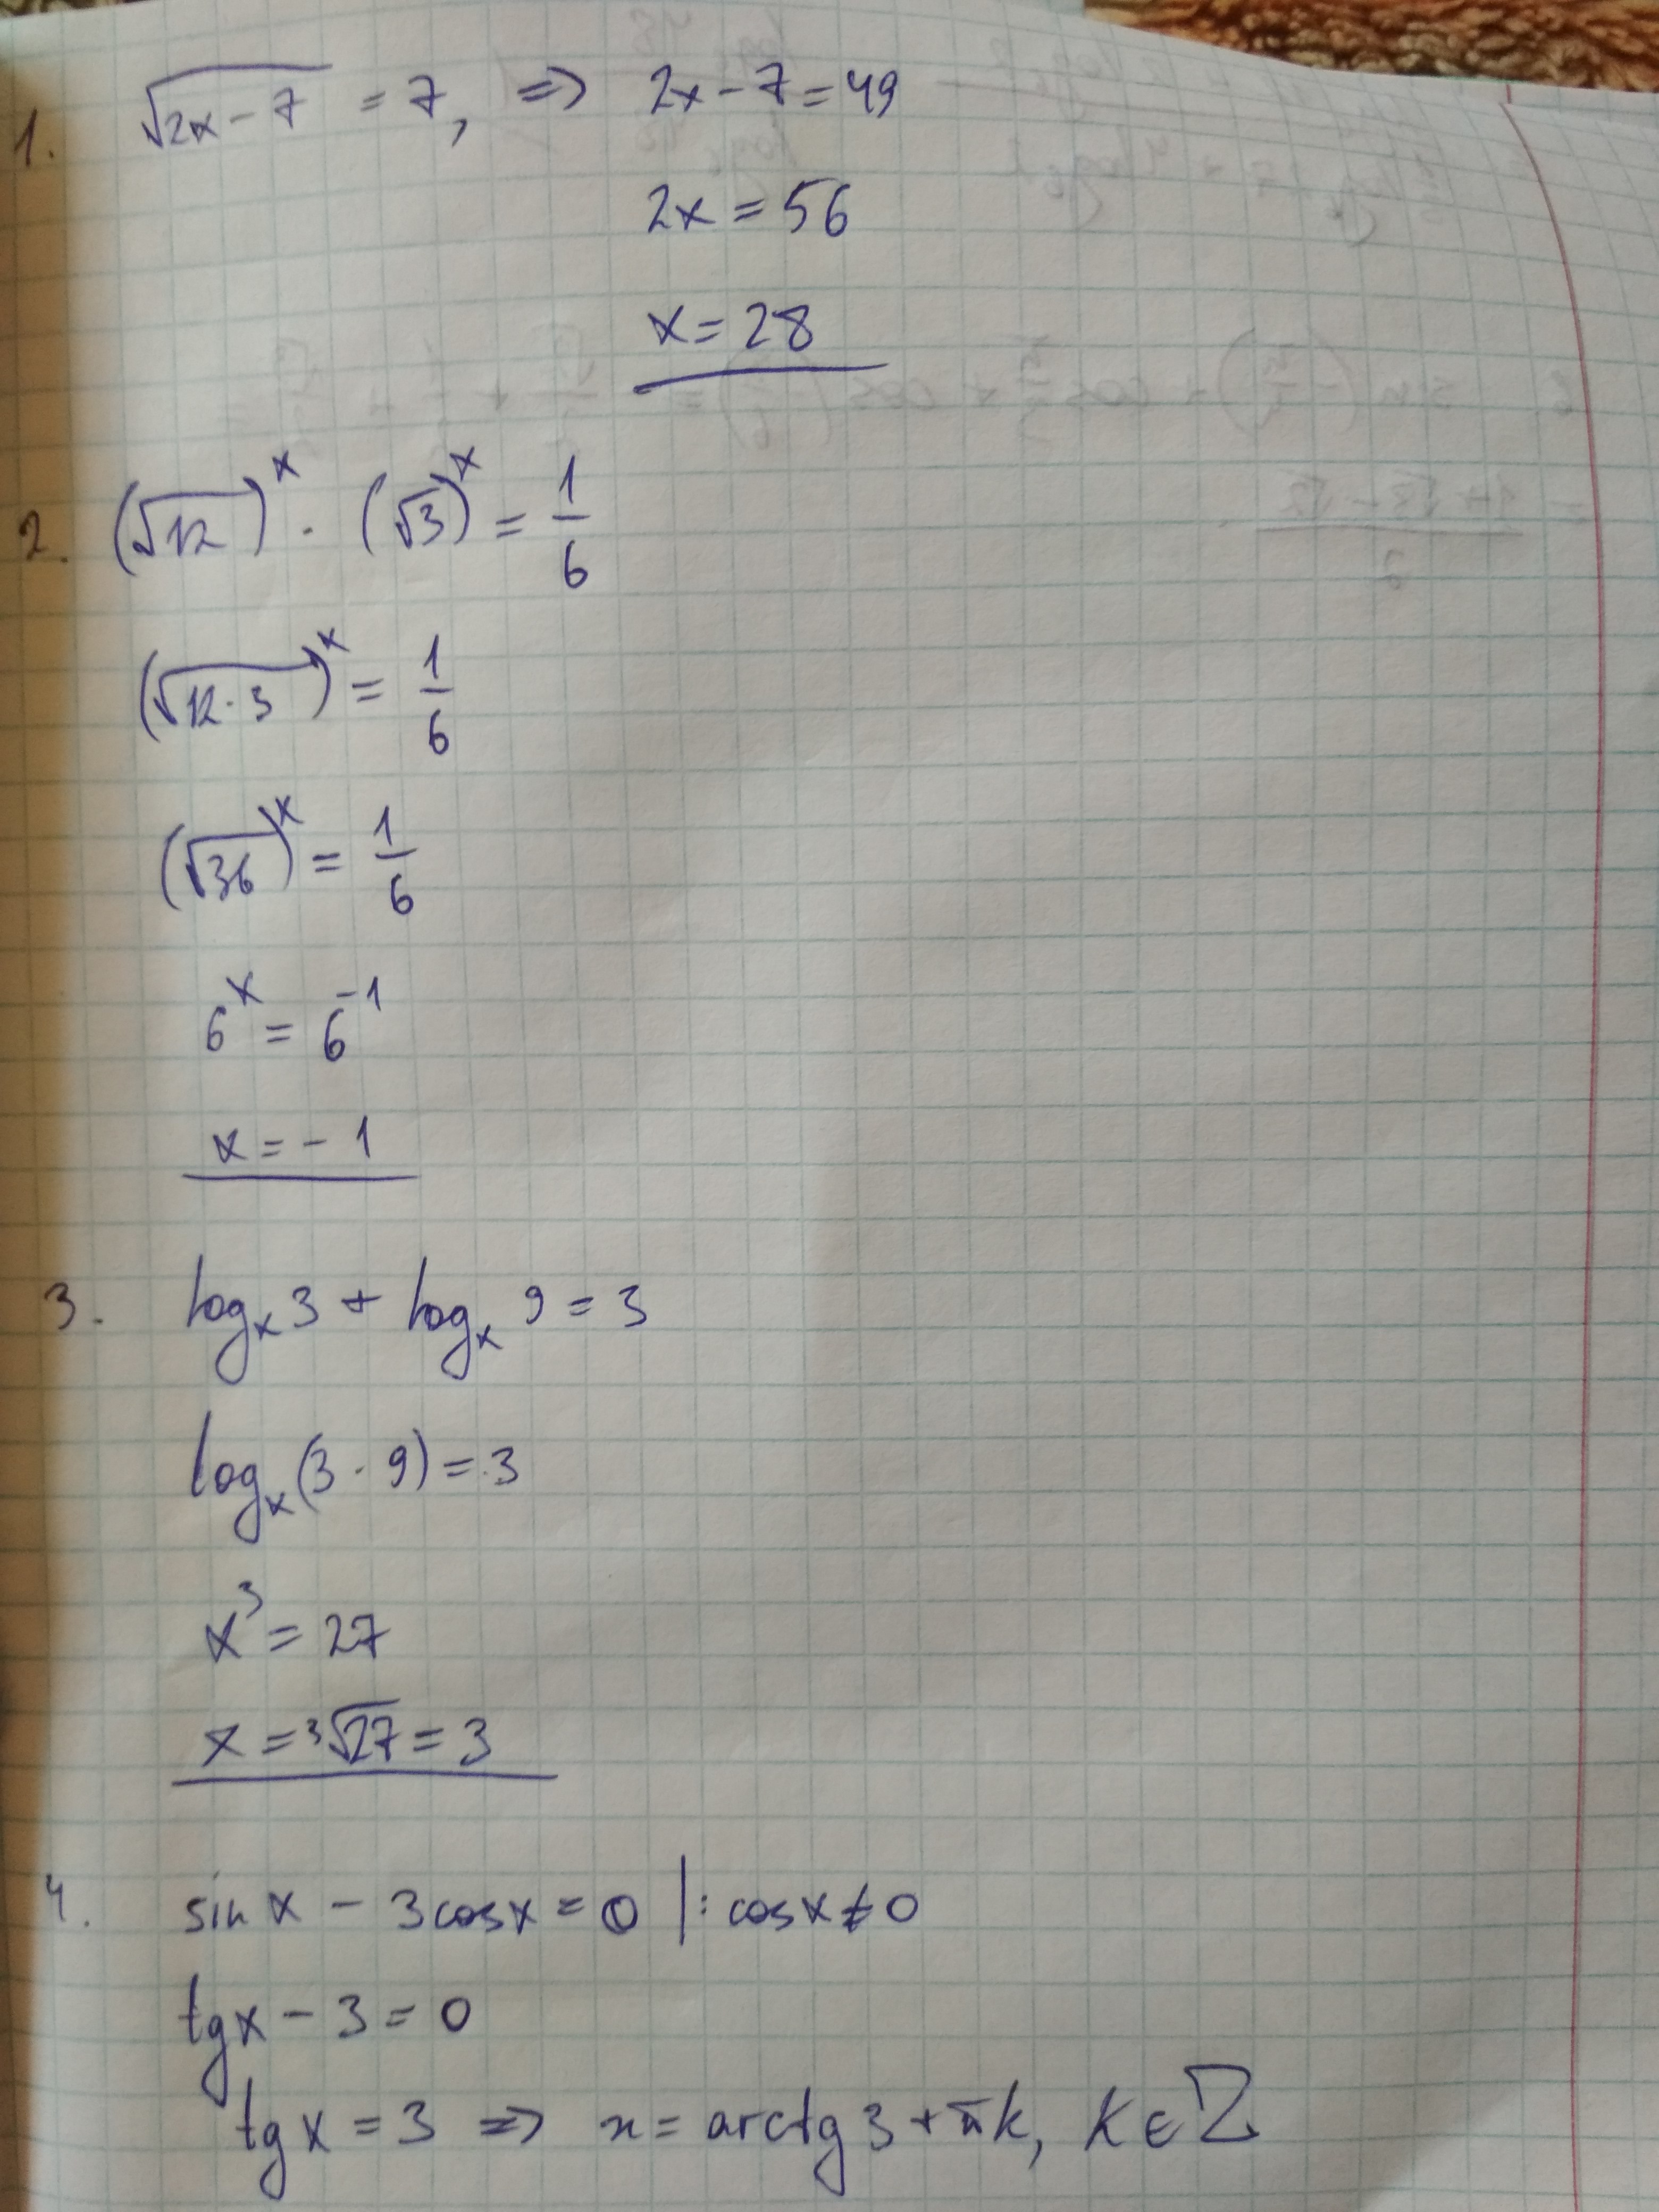 1. √(2x-7) = 7, => 2x-7=49
2x=56
x=28
2. (√12)^x · (√3)^x = 1/6
(√(12·3))^x = 1/6
(√36)^x = 1/6
6^x = 6^-1
x=-1
3. log_x 3 + log_x 9 = 3
log_x (3·9) = 3
x^3 = 27
x = ³√27 = 3
4. sin x - 3cosx = 0 |: cosx≠0
tgx - 3 = 0
tgx = 3 => x = arctg 3 + πk, k∈Z